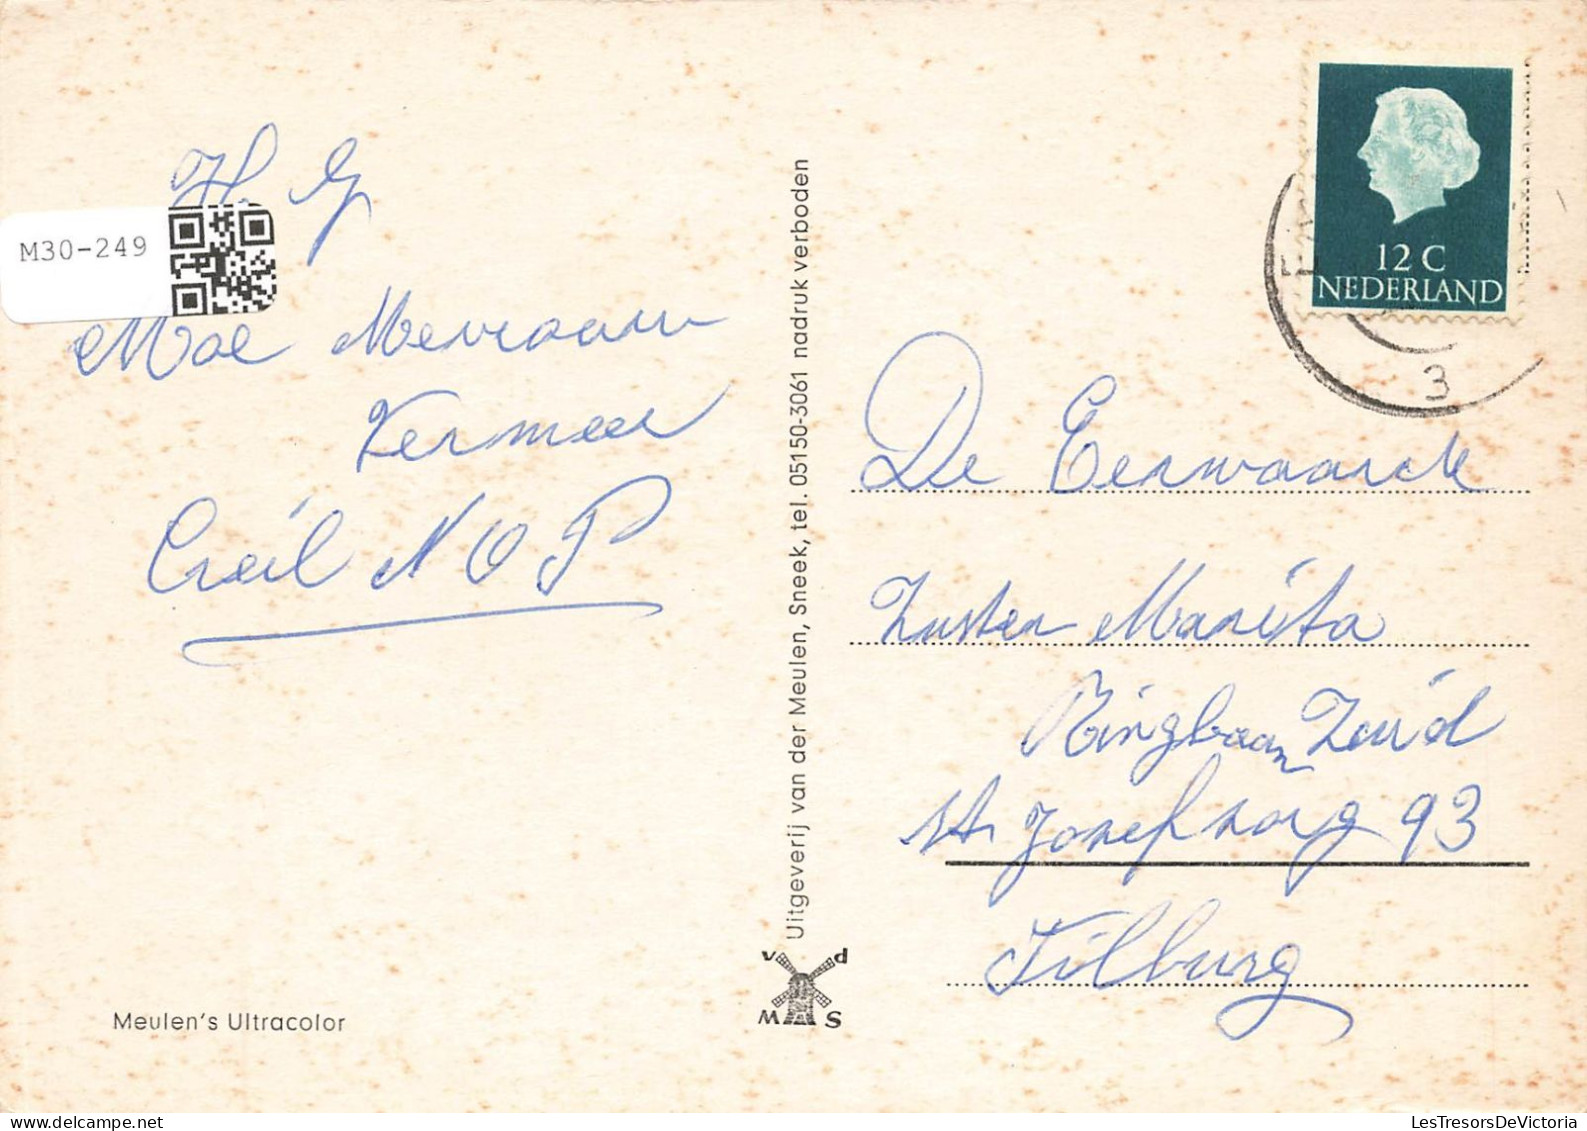 H. G
M30-249
Moe Mevrouw
Vermeer
Creil N O P
Meulen's Ultracolor
Uitgeverij van der Meulen, Sneek, tel. 05150-3061 nadruk verboden
v d
M S
12 C
NEDERLAND
3
De Eerwaarde
Zuster Marita
Ringbaan Zuid
St Josefzorg 93
Tilburg
LesTresorsDeVictoria
delcampe.net